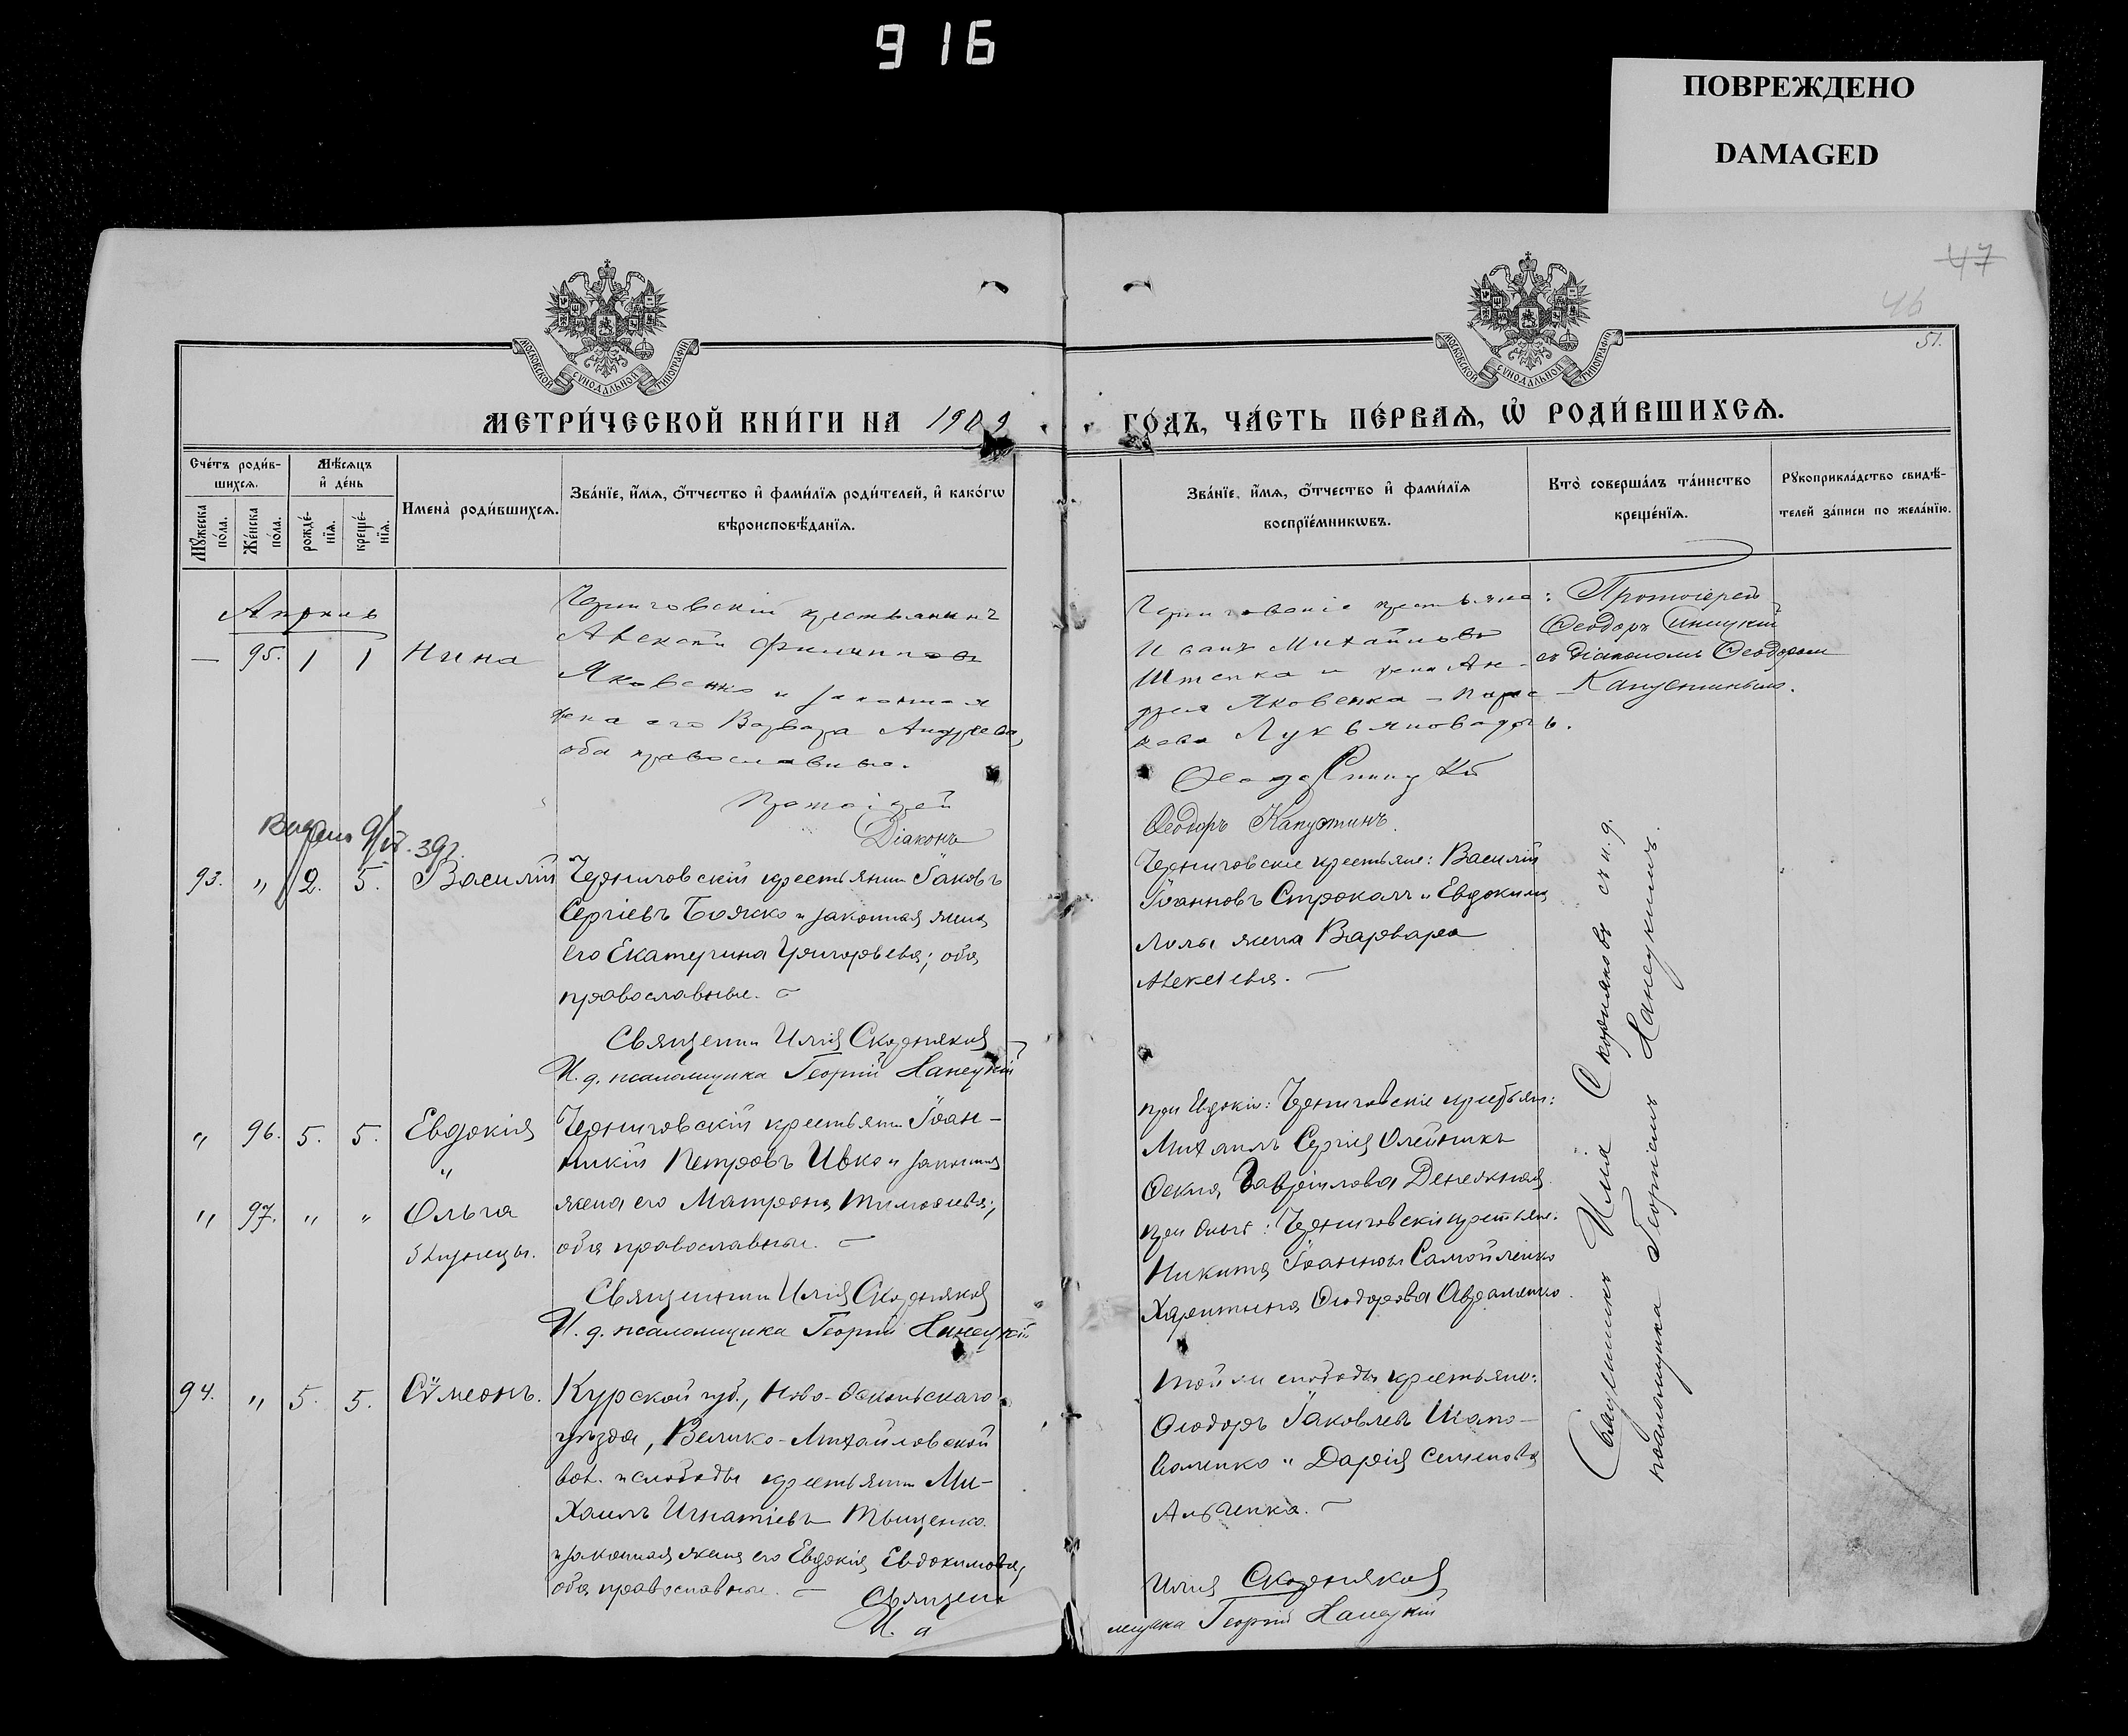 916
ПОВРЕЖДЕНО
DAMAGED
47
46
51.
МОСКОВСКОЙ СѴНОДАЛЬНОЙ ТИПОГРАФІИ
МОСКОВСКОЙ СѴНОДАЛЬНОЙ ТИПОГРАФІИ
МЕТРИ́ЧЕСКОЙ КНИ́ГИ НА 1909
ГО́ДЪ, ЧА́СТЬ ПЕ́РВАѦ, Ѽ РОДИ́ВШИХСѦ.
Сче́тъ роди́в-
шихсѧ.
Мꙋ́жеска
по́ла.
Же́нска
по́ла.
Мѣ́сѧцъ
и҆ де́нь
рожде́-
нїѧ.
креще́-
нїѧ.
Имена̀ роди́вшихсѧ.
Зва́нїе, и҆́мѧ, ѻ҆́тчество и҆ фами́лїѧ роди́телей, и҆ како́гѡ
вѣроисповѣ́данїѧ.
Зва́нїе, и҆́мѧ, ѻ҆́тчество и҆ фами́лїѧ
воспрїе́мникѡвъ.
Кто̀ соверша́лъ та́инство
креще́нїѧ.
Рꙋкоприкла́дство свидѣ́-
телей за́писи по жела́нїю.
Апрѣль
— 95. 1 1 Нина
Черниговскій крестьянинъ
Филипповъ
Яковенко и законная
жена его Варвара Андреева,
оба православные.
Протоіерей
Діаконъ
Черниговскіе крестьяне:
Иоанъ Михайловъ
Штепка и жена Ан-
дрея Яковенка — Парас-
кева Лукьянова
Ѳеодоръ Синицкій
Ѳеодоръ Капустинъ.
Протоіерей
Ѳеодоръ Синицкій
съ діакономъ Ѳеодоромъ
Капустинымъ.
39г.
93. " 2. 5. Василій
Черниговскій крестьянин Іаковъ
Сергіевъ Бояжко и законная жена
его Екатерина Григорьева; оба
православные.
Священник Илія Скорняков
И. д. псаломщика Георгій Ханецкій
Черниговскіе крестьяне: Василій
Іоанновъ Строкачъ и Евдокима
жена Варвара
Алексіева.
" 96. 5. 5. Евдокія
"
" 97. " " Ольга
близнецы.
Черниговскій крестьянин Іоан-
никій Петровъ Ивко и законная
жена его Матрона Тимоѳеева;
оба православные.
Священник Илія Скорняков
И. д. псаломщика Георгій Ханецкій
при Евдокіи: Черниговскіе крестьян:
Михаилъ Сергіев Олейникъ
Гавріилова Денежная
при Ольгѣ: Черниговскіе крестьяне:
Никита Іоаннов Самойленко
Харитина Ѳеодорова Авраменко.
94. " 5. 5. Сѵмеонъ.
Курской губ., Ново-Оскольскаго
уѣзда, Велико-Михайловской
вол. и слободы крестьянин Ми-
хаилъ Игнатіевъ Тыщенко
и законная жена его Евдокія Евдокимова,
оба православные.
Священ
И. д
той же слободы крестьяне:
Ѳеодоръ Іаковлевъ Шапо-
и Дарія Семенова
Илія Скорняков
мщика Георгій Ханецкій
Священникъ Илія Скорняковъ съ и. д.
псаломщика Георгіемъ Ханецкимъ.